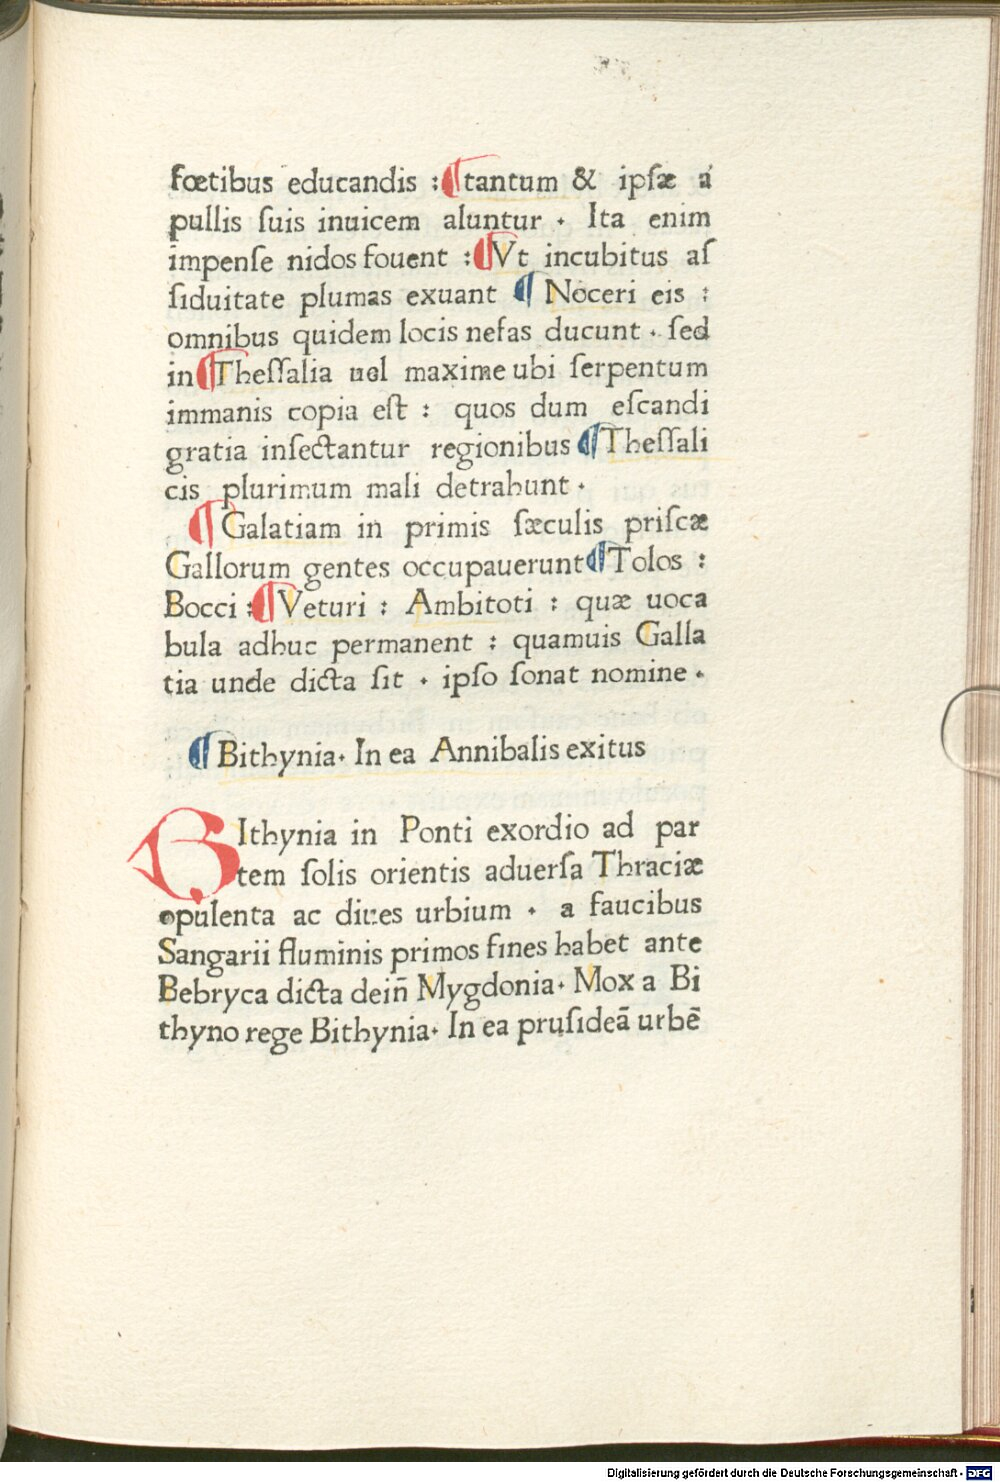 fœtibus educandis : ¶ tantum & ipſæ a
pullis ſuis inuicem aluntur · Ita enim
impenſe nidos fouent : ¶ Vt incubitus aſ
ſiduitate plumas exuant ¶ Noceri eis :
omnibus quidem locis nefas ducunt · ſed
in ¶ Theſſalia uel maxime ubi ſerpentum
immanis copia eſt : quos dum eſcandi
gratia inſectantur regionibus ¶ Theſſali
cis plurimum mali detrahunt ·
¶ Galatiam in primis ſæculis priſcæ
Gallorum gentes occupauerunt ¶ Tolos :
Bocci : ¶ Veturi : Ambitoti : quæ uoca
bula adhuc permanent : quamuis Galla
tia unde dicta ſit · ipſo ſonat nomine ·
¶ Bithynia · In ea Annibalis exitus
BIthynia in Ponti exordio ad par
tem ſolis orientis aduerſa Thraciæ
opulenta ac diues urbium · a faucibus
Sangarii fluminis primos fines habet ante
Bebryca dicta dein̄ Mygdonia · Mox a Bi
thyno rege Bithynia · In ea pruſideā urbē
Digitalisierung gefördert durch die Deutsche Forschungsgemeinschaft - DFG